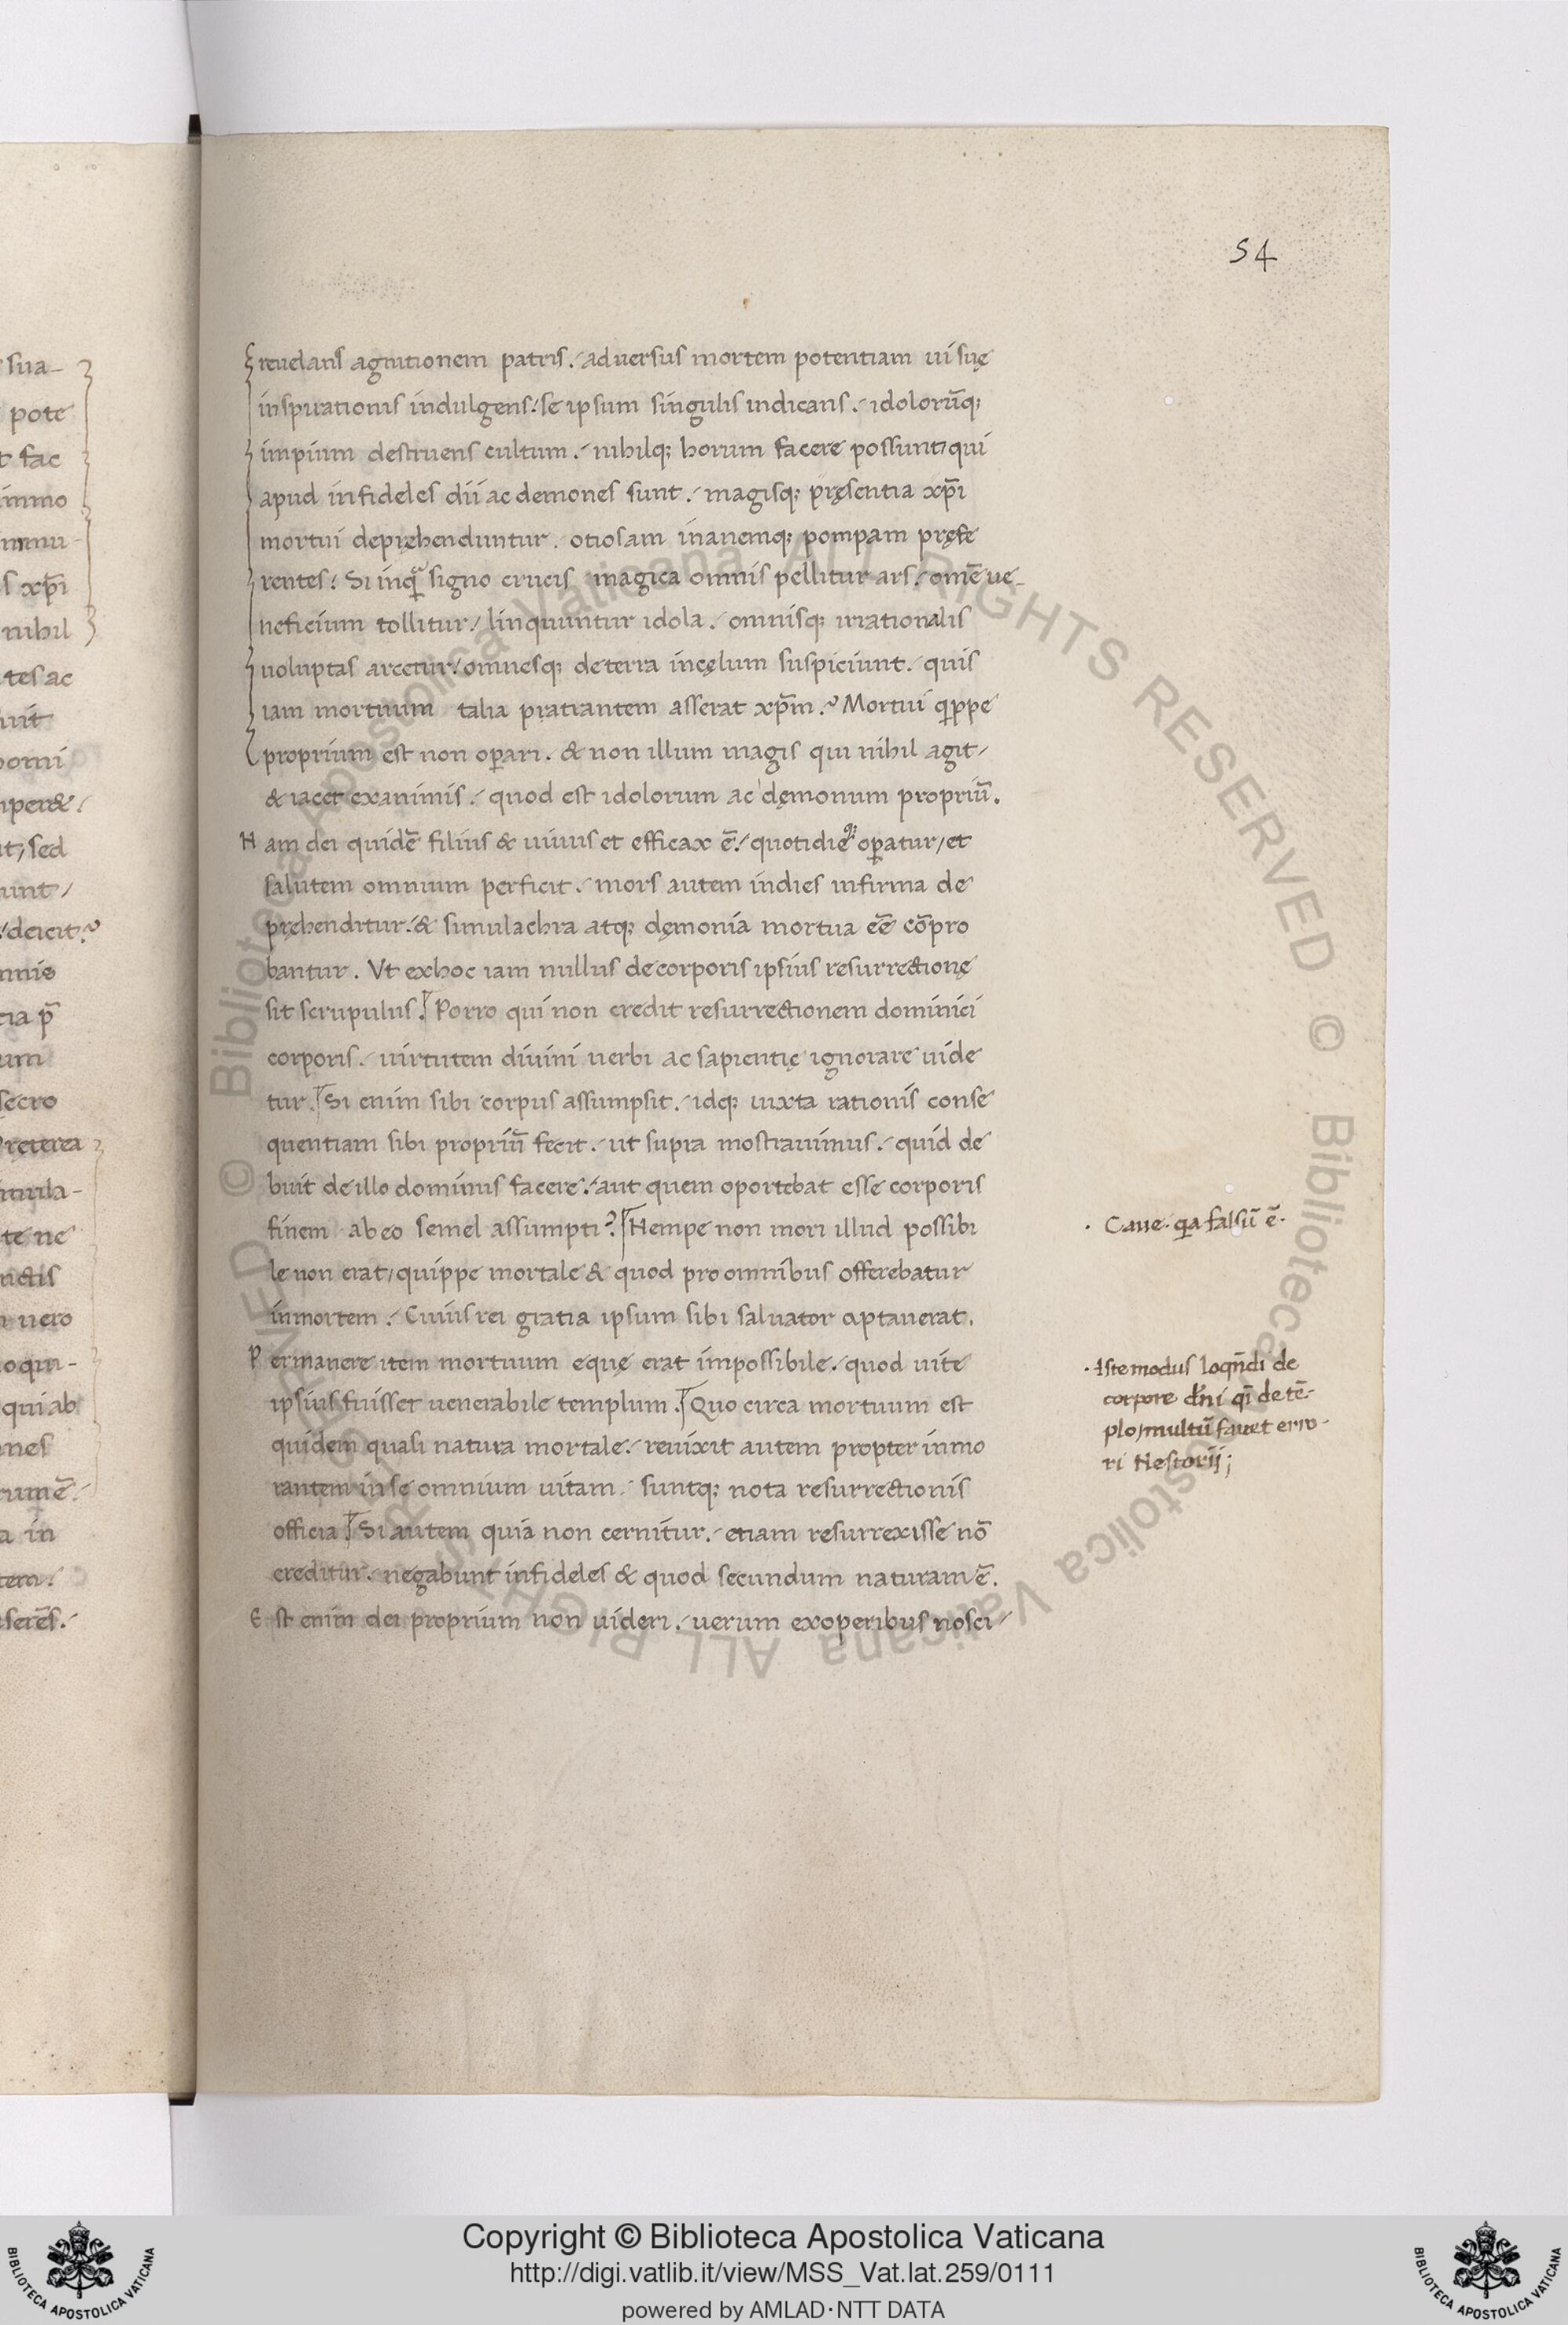 54
reuelans agnitionem patris. adversus mortem potentiam ui suę
inspirationis indulgens. se ipsum singulis indicans. idolorūq;
impium destruens cultum. nihilq; horum facere possunt, qui
apud infideles dii ac demones sunt. magisq; pręsentia xp̄i
mortui depręhenduntur. otiosam inanemq; pompam pręfe
rentes. Si inquā signo crucis magica omnis pellitur ars. omē ue-
neficium tollitur / linquuntur idola. omnisq; irrationalis
uoluptas arcetur. omnesq; de terra in cęlum suspiciunt. quis
iam mortuum talia pratrantem asserat xp̄m.? Mortui qippe
proprium est non oṗari. & non illum magis qui nihil agit /
& iacet exanimis. quod est idolorum ac dęmonum propriū.
Nam dei quidē filius & uiuus et efficax ē. quotidieq; oṗatur, et
salutem omnium perficit. mors autem indies infirma de
pręhenditur. & simulachra atq; dęmonia mortua eē cōpro
bantur. Vt ex hoc iam nullus de corporis ipsius resurrectionę
sit scrupulus. Porro qui non credit resurrectionem dominici
corporis. uirtutem diuini uerbi ac sapientię ignorare uide
tur. Si enim sibi corpus assumpsit. idq; iuxta rationis conse
quentiam sibi propriū fecit. ut supra mostrauimus. quid de
buit de illo dominus facere. aut quem oportebat esse corporis
finem ab eo semel assumpti? Nempe non mori illud possibi
le non erat, quippe mortale & quod pro omnibus offerebatur
in mortem. Cuius rei gratia ipsum sibi saluator aptauerat.
Permanere item mortuum equę erat impossibile. quod uite
ipsius fuisset uenerabile templum. Quo circa mortuum est
quidem quali natura mortale. reuixit autem propter inmo
rantem in se omnium uitam. suntq; nota resurrectionis
officia. Si autem quia non cernitur. etiam resurrexisse nō
creditur. negabunt infideles & quod secundum naturam ē.
Est enim dei proprium non uideri. uerum ex operibus nosci /
Caue. qa falsū ē.
Iste modus loqn̄di de
corpore dn̄i qī de tē-
plo, multū fauet erro-
ri Nestorij;
sua-
pote
t fac
immo
s xp̄i
nihil
tes ac
sed
unt /
deicit?
secro
Pręterea
te ne
uero
qui ab
a in
Copyright © Biblioteca Apostolica Vaticana
http://digi.vatlib.it/view/MSS_Vat.lat.259/0111
powered by AMLAD·NTT DATA
BIBLIOTECA APOSTOLICA VATICANA
BIBLIOTECA APOSTOLICA VATICANA
© Biblioteca Apostolica Vaticana ALL RIGHTS RESERVED © Biblioteca Apostolica Vaticana ALL RIGHTS RESERVED